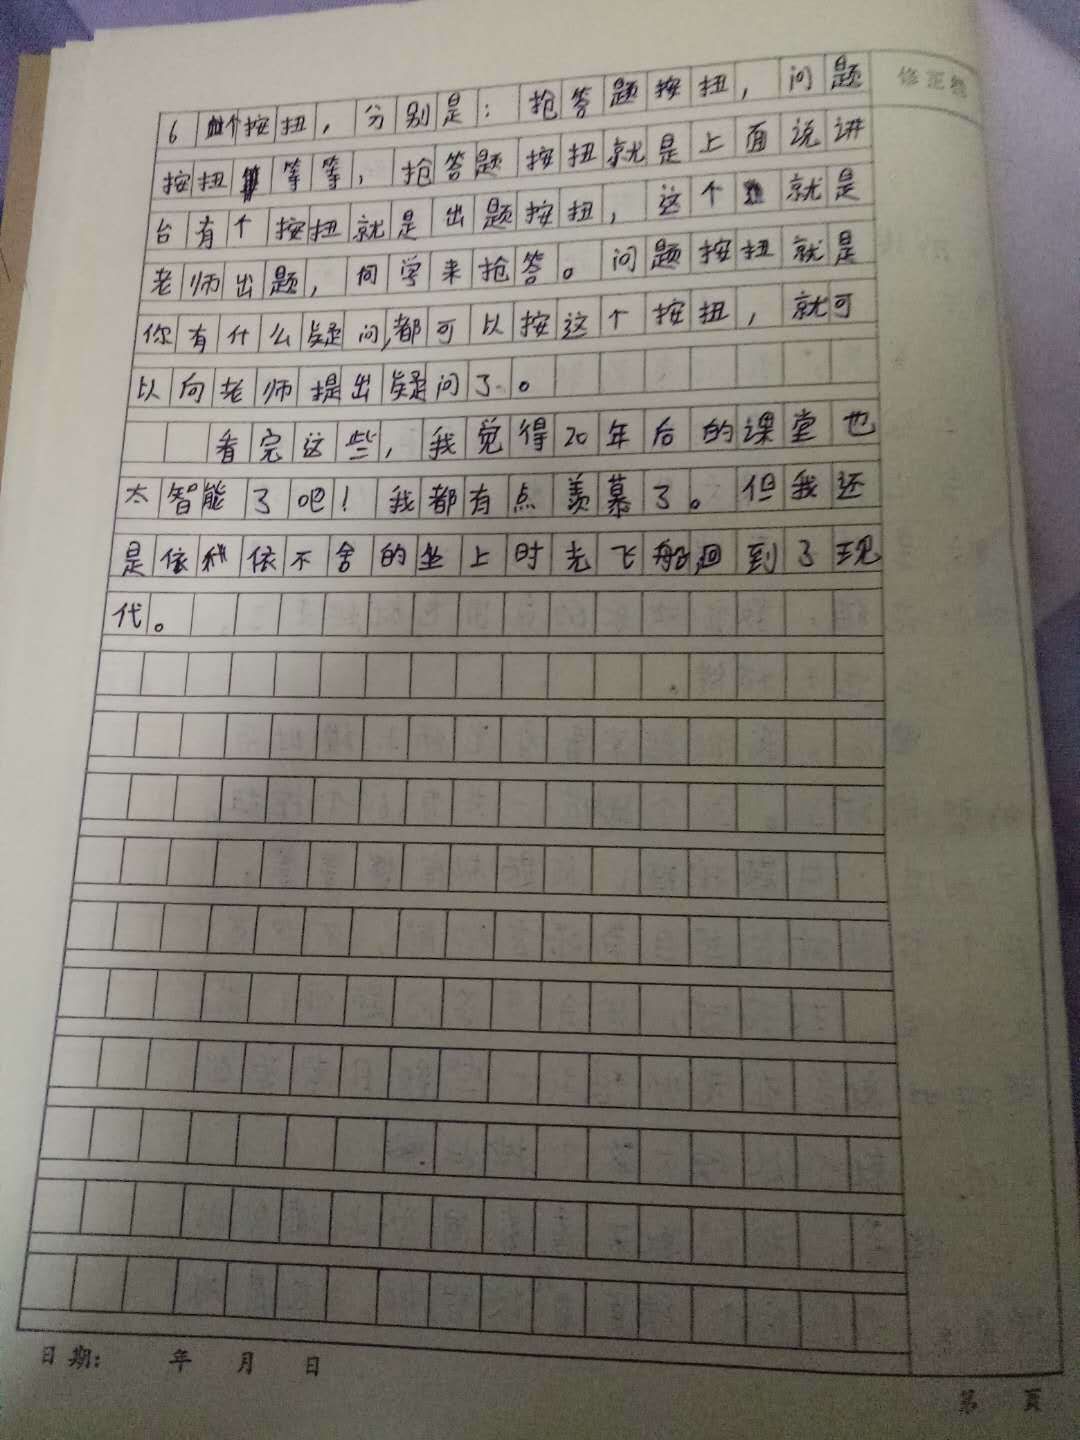 修正栏
6个按扭，分别是：抢答题按扭，问题
按扭等等，抢答题按扭就是上面说讲
台有个按扭就是出题按扭，这个就是
老师出题，同学来抢答。问题按扭就是
你有什么疑问,都可以按这个按扭，就可
以向老师提出疑问了。
看完这些，我觉得20年后的课堂也
太智能了吧！我都有点羡慕了。但我还
是依依不舍的坐上时光飞船,回到了现
代。
日期： 年 月 日
第 页